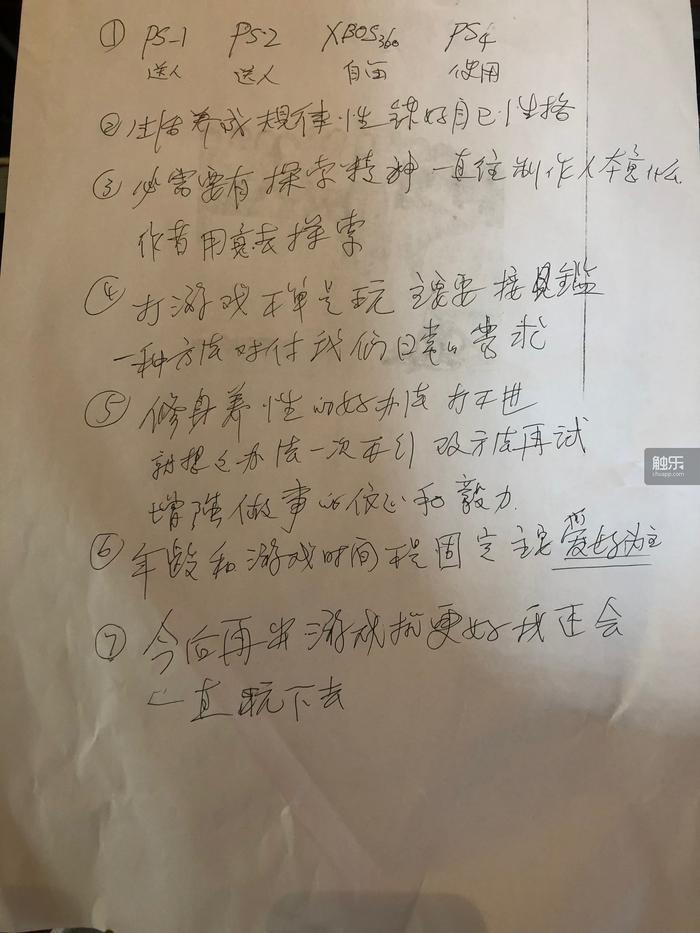 ① PS-1 PS-2 XBOS360 PS4
送人 送人 自留 使用
② 生活养成规律性 锻好自己性格
③ 必需要有探索精神 一直往制作人本意什么
作者用意去探索
④ 打游戏不单是玩 主要要接見鑑
一种方法对付我们日常的需求
⑤ 修身养性的好办法 打不进
就想之办法一次不行 改方法再试
增强做事的信心和毅力.
⑥ 年龄和游戏时间不是固定 主要爱好为主
⑦ 今后再出游戏机更好我还会
一直玩下去
触乐
chuapp.com